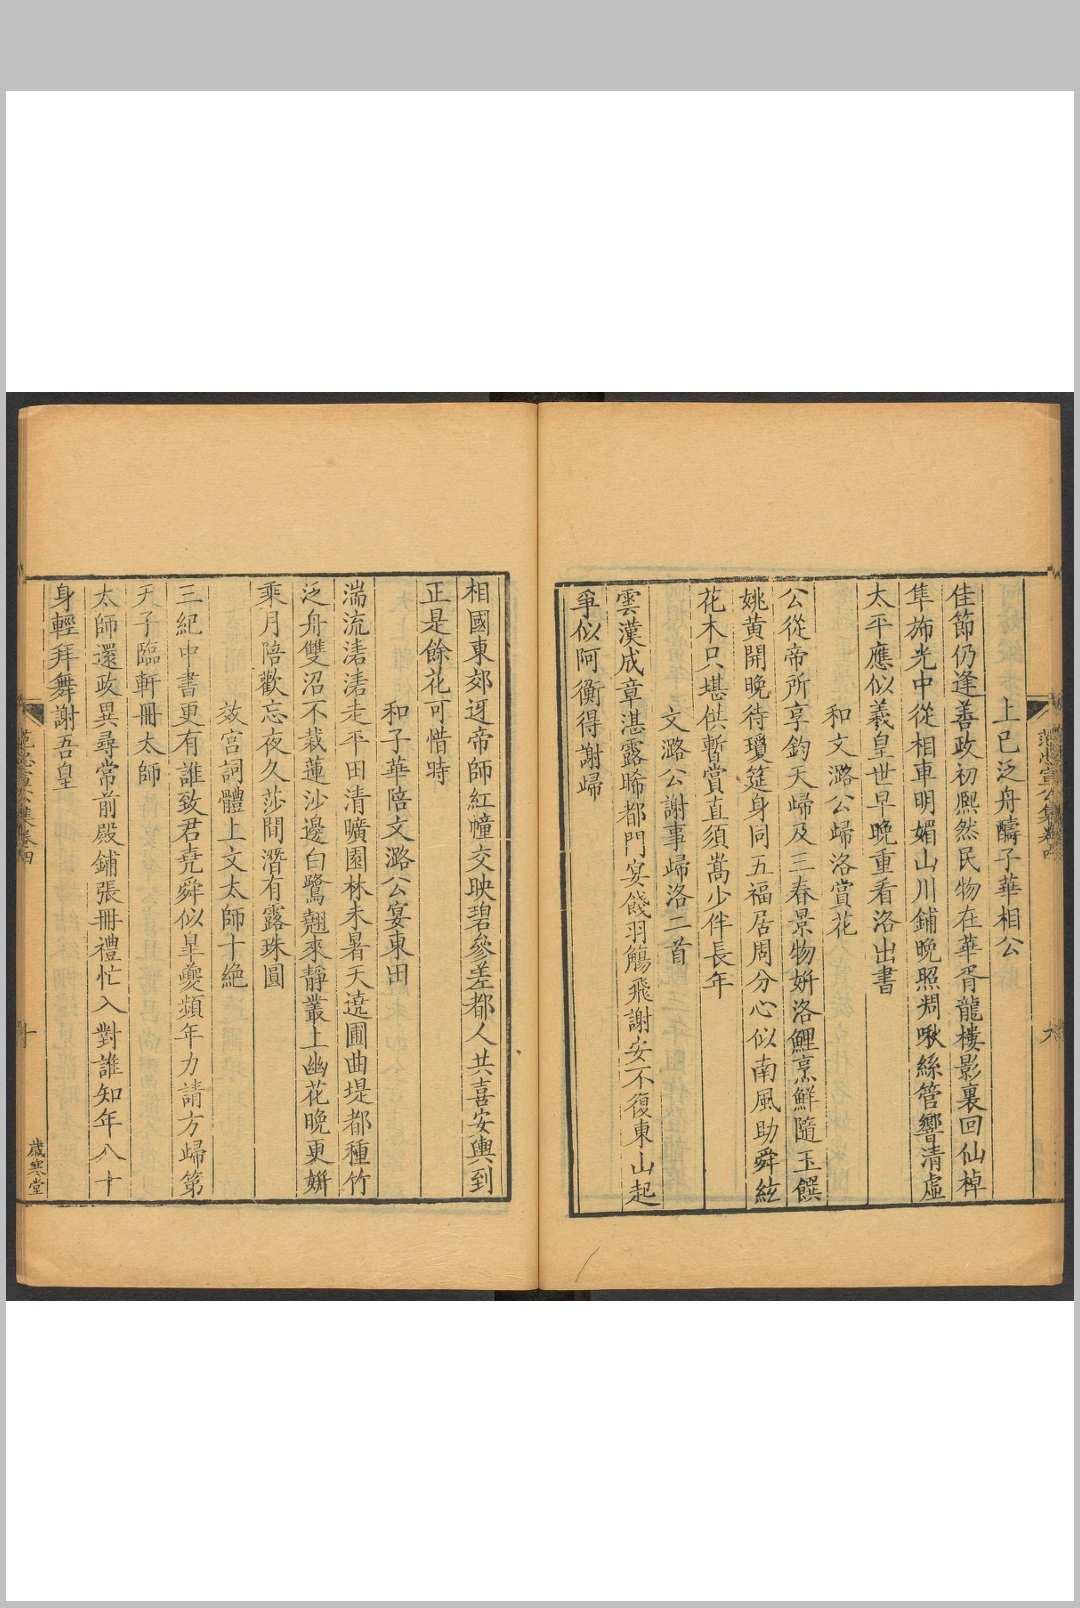 上巳泛舟醻子華相公
佳節仍逢善政初熙然民物在華胥龍樓影裏回仙棹
隼旆光中從相車明媚山川鋪晚照凋啾絲管響清虛
太平應似羲皇世早晚重看洛出書
和文潞公歸洛賞花
公從帝所享鈞天歸及三春景物妍洛鯉烹鮮隨玉饌
姚黄開晚待瓊筵身同五福居周分心似南風助舜絃
花木只堪供暫賞直須嵩少伴長年
文潞公謝事歸洛二首
雲漢成章湛露晞都門宴餞羽觴飛謝安不復東山起
爭似阿衡得謝歸
相國東郊迓帝師紅幢交映碧參差都人共喜安輿到
正是餘花可惜時
和子華陪文潞公宴東田
湍流潝潝走平田清曠園林未暑天遶圃曲堤都種竹
泛舟雙沼不栽蓮沙邊白鷺翹來靜叢上幽花晚更妍
乘月陪歡忘夜久莎間潛有露珠圓
效宫詞體上文太師十絶
三紀中書更有誰致君堯舜似臯夔頻年力請方歸第
天子臨軒冊太師
太師還政異尋常前殿鋪張冊禮忙入對誰知年八十
身輕拜舞謝吾皇
范忠宣公集卷四
歲寒堂